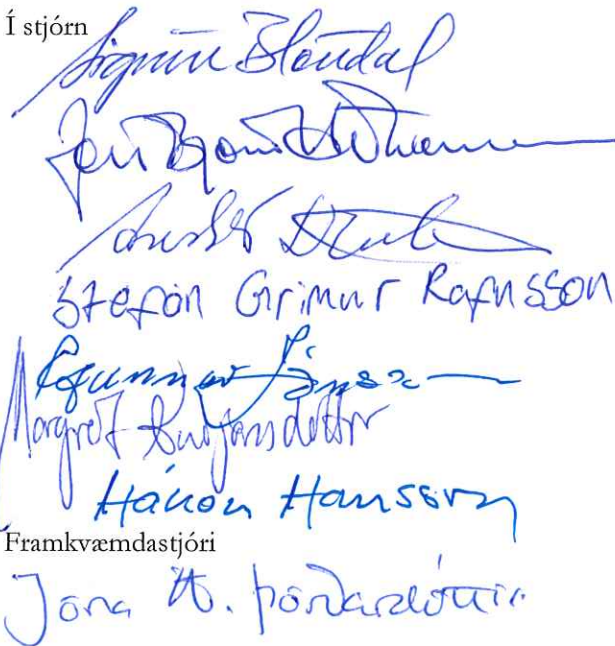 Í stjórn
Sigrún Blöndal
Jón Björn
Stefán Grímur Rafnsson
Gunnar Jónsson
Margrét
Hákon Hansson
Framkvæmdastjóri
Jona Á. Þórðardóttir